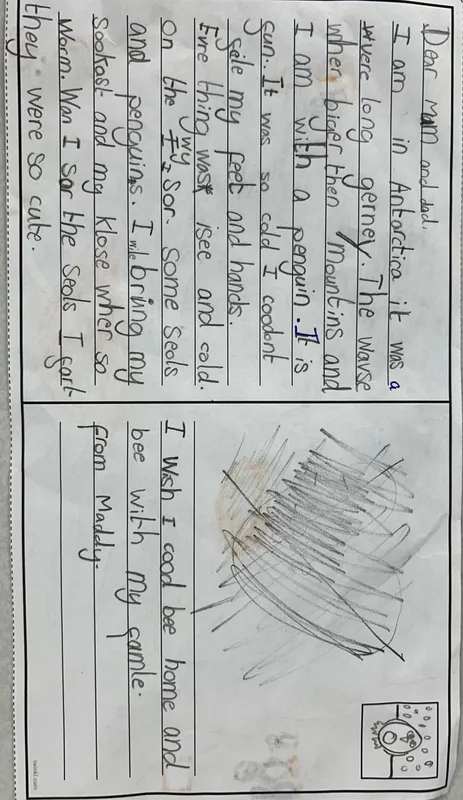 Dear Mum and dad,
I am in Antarctica it was a
vere long gerney. The wavse
wher biger then mountins and
I am with a penguin. It is
fun. It was so cold I coodent
feile my feet and hands.
Evre thing was isee and cold.
on the wy I sor. Some Seals
and penguins. I wle bring my
sookst and my klose wher so
worm. Wan I sor the seals I gart
they were so cute.
I wish I cood bee home and
bee with my famle.
from Maddy.
twinkl.com